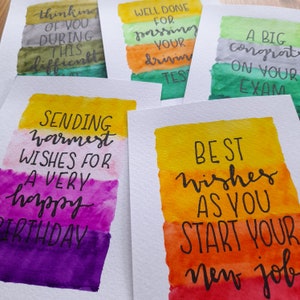 thinking
OF YOU
DURING
THIS
difficult
WELL DONE
FOR
passing
YOUR
driving
TEST
A BIG
congrats
ON YOUR
EXAM
SENDING
warmest
WISHES FOR
A VERY
happy
BIRTHDAY
BEST
wishes
AS YOU
START YOUR
new job